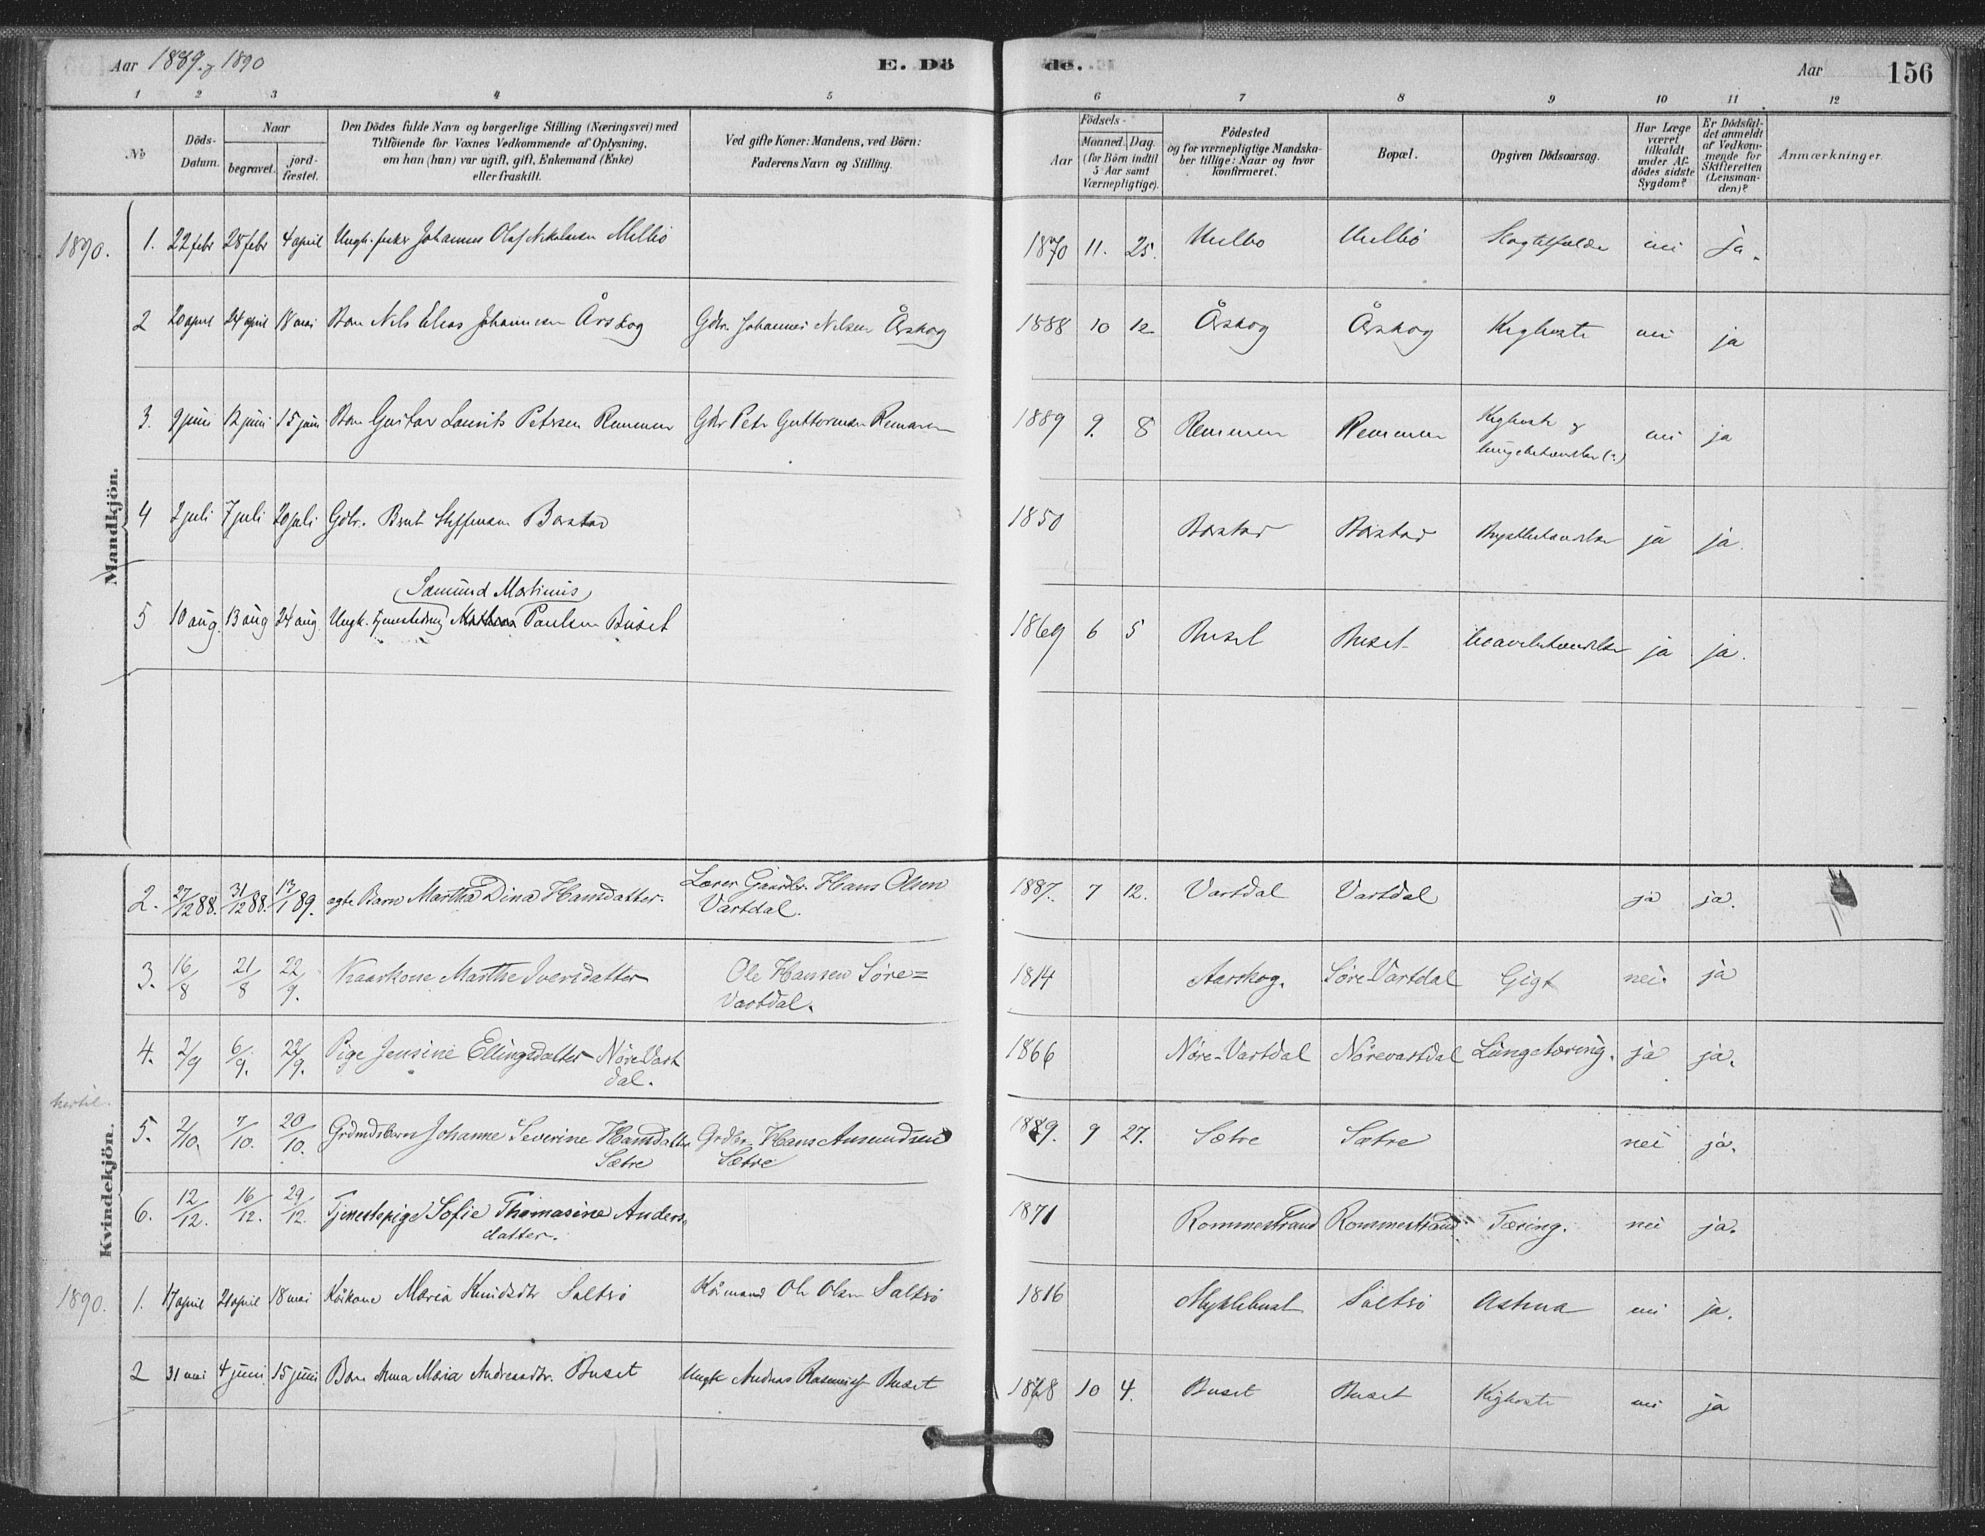 Aar 1889 og 1890 E. Dö de. Aar 156
1 2 3 4 5 6 7 8 9 10 11 12
No
Döds-Datum.
Naar
begravet.
jord-fæstet.
Den Dödes fulde Navn og borgerlige Stilling (Næringsvei) med
Tilföiende for Voxnes Vedkommende af Oplysning,
om han (hun) var ugift, gift, Enkemand (Enke)
eller fraskilt.
Ved gifte Koner: Mandens, ved Börn:
Faderens Navn og Stilling.
Födsels-
Aar
Maaned. Dag.
(for Börn indtil
5 Aar samt
Værnepligtige).
Födested
og for værnepligtige Mandska-
ber tillige: Naar og hvor
konfirmeret.
Bopæl.
Opgiven Dödsaarsag.
Har Læge
været
tilkaldt
under Af-
dödes sidste
Sygdom?
Er Dödsfal-
det anmeldt
af Vedkom-
mende for
Skifteretten
(Lensman-
den)?
Anmærkninger.
Mandkjön.
1890. 1. 22 febr 28 febr 4 april Johannes Olaf Nikolaisen Melbö 1870 11. 25. Melbö nei ja.
2 20 april 24 april 18 mai Barn Nils Elias Johannesen Årskog Gdbr. Johannes Nilsen Årskog 1888 10 12 Årskog Årskog Kighoste nei ja
3. 9 juni 12 juni 15 juni Barn Gustav Laurits Petersen Remmen Gdbr Peter Guttormsen Remmen 1889 9. 8 Remmen Remmen Kighoste og
lungebetændelse (?) nei ja
4 2 juli 7 juli 20 juli Gdbr. Bernt Steffensen Barstad 1850 Barstad Barstad ja ja.
Samund Martinus
5 10 aug. 13 aug 24 aug Ungk. tjenestedreng Paulsen Buset 1869 6 5 Buset Buset ja ja.
Kvindekjön.
2. 27/12 88. 31/12 88. 13/1 89. ægte Barn Martha Dina Hansdatter. Lærer Gaardbr. Hans Olsen
Vartdal. 1887. 7 12. Vartdal Vartdal ja ja.
3. 16/8 21/8 22/9. Kaarkone Marthe Iversdatter Ole Hansen Søre=
Vartdal. 1814 Aarskog. Søre-Vartdal Gigt nei. ja
4. 2/9 6/9. 22/9. Pige Jensine Ellingsdatter Nøre Vart
dal. 1866 Nøre-Vartdal Nørevartdal Lungetæring. ja ja.
hertil.
5. 2/10. 7/10. 20/10. Grdmdsbarn Johanne Severine Hansdatter
Sætre Grdbr. Hans Amundsen
Sætre 1889. 9 27. Sætre Sætre nei ja.
6. 12/12. 16/12. 29/12. Tjenestepige Sofie Thomasine Anders-
datter. 1871 Rommestrand Rommestrand Tæring. nei ja.
1890. 1. 17 april 21 april 18 mai Kårkone Maria Knudsdtr Saltrö Kårmand Ole Olsen Saltrö 1816 Myklebust Saltrö Astma nei ja.
2 31 mai 4 juni 15 juni Barn Anna Maria Andreasdtr. Buset Ungk Andreas Rasmussen Buset 10 4. Buset Buset Kighoste nei ja